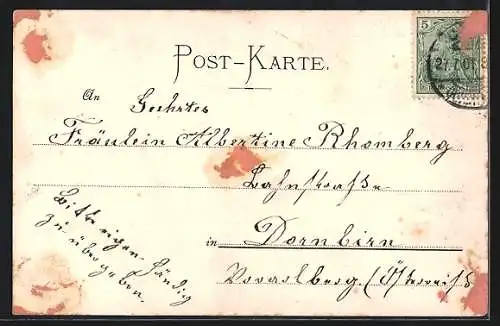 POST-KARTE.
5
27.7.01.
An
Geehrtes
Fräulein Albertine Rhomberg
Bahnstraße
in Dornbirn
Vorarlberg. (Österreich
Bitte eigen-
händig
zu übergeben.